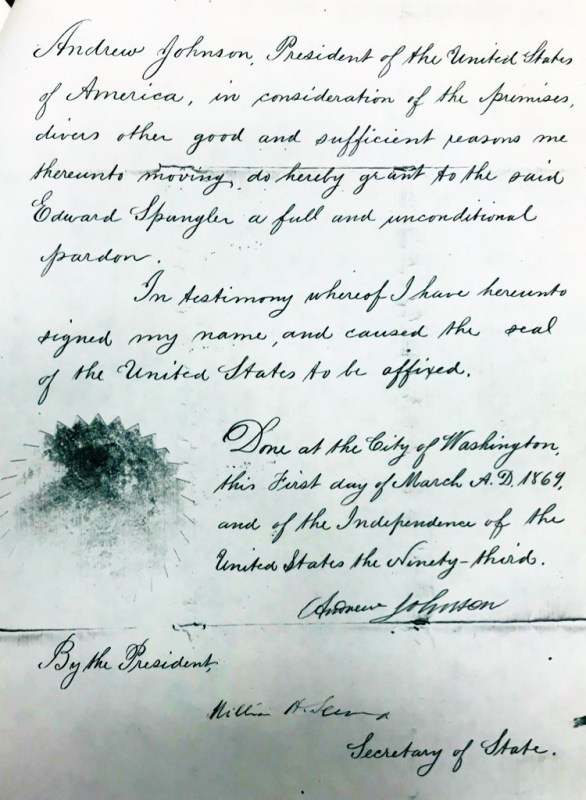 Andrew Johnson, President of the United States
of America, in consideration of the premises,
divers other good and sufficient reasons me
thereunto moving, do hereby grant to the said
Edward Spangler a full and unconditional
pardon.
In testimony whereof I have hereunto
signed my name, and caused the seal
of the United States to be affixed.
Done at the City of Washington,
this First day of March A.D. 1869,
and of the Independence of the
United States the Ninety-third.
Andrew Johnson
By the President,
William H. Seward
Secretary of State.